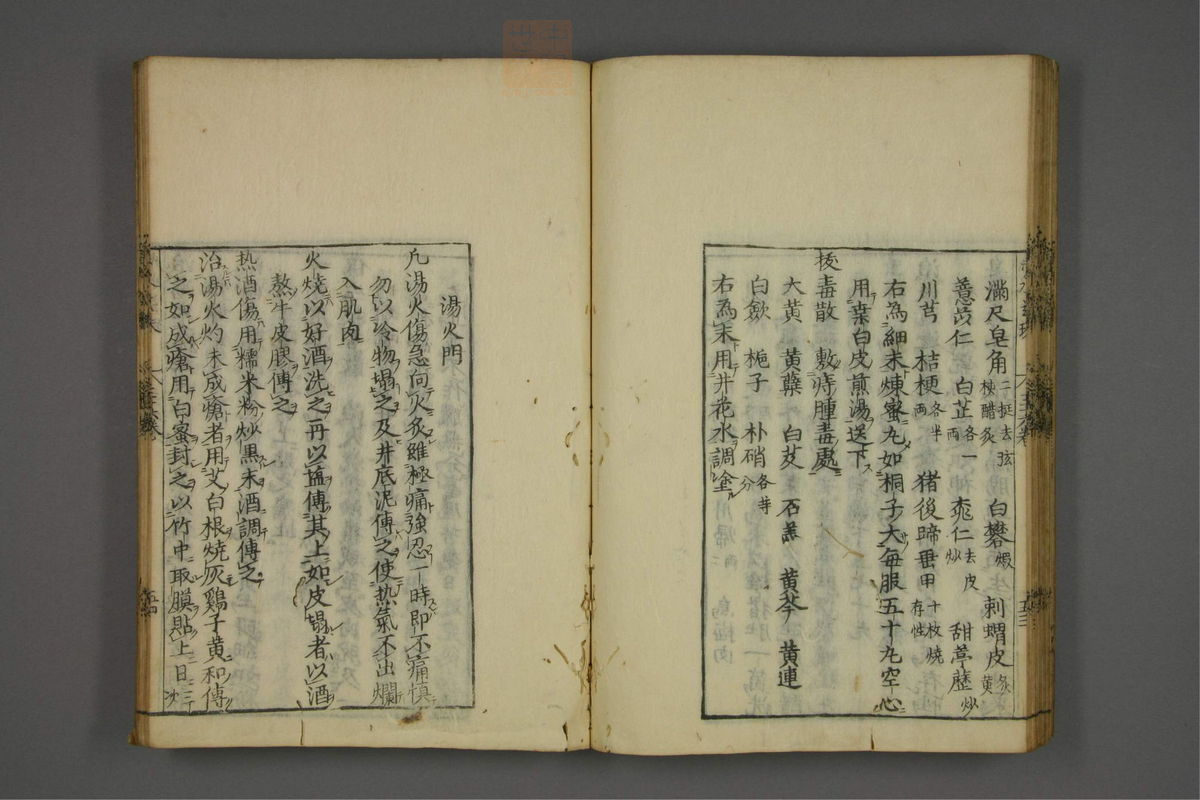 滿尺皂角二挺去弦核醋炙 白礬煆 刺蝟皮炙黄
薏苡仁 白芷各一兩 桃仁去皮炒 甜葶藶炒
川芎 桔梗各半兩 猪後蹄垂甲十枚燒存性
右為細末煉蜜丸如桐子大每服五十丸空心
用桒白皮煎湯送下
拔毒散 敷痔腫毒處
大黄 黄蘗 白芨 石羔 黄芩 黄連
白歛 梔子 朴硝各等分
右為末用井花水調塗
湯火門
凡湯火傷急向火炙雖極痛強忍一時即不痛慎
勿以冷物塌之及井底泥傅之使热氣不出爛
入肌肉
火燒以好酒洗之再以塩傅其上如皮塌者以酒
熬牛皮膠傅之
热酒傷用糯米粉炒黒末酒調傅之
治湯火灼未成瘡者用艾白根燒灰鷄子黄和傅
之如成瘡用白蜜封之以竹中取膜貼上日三